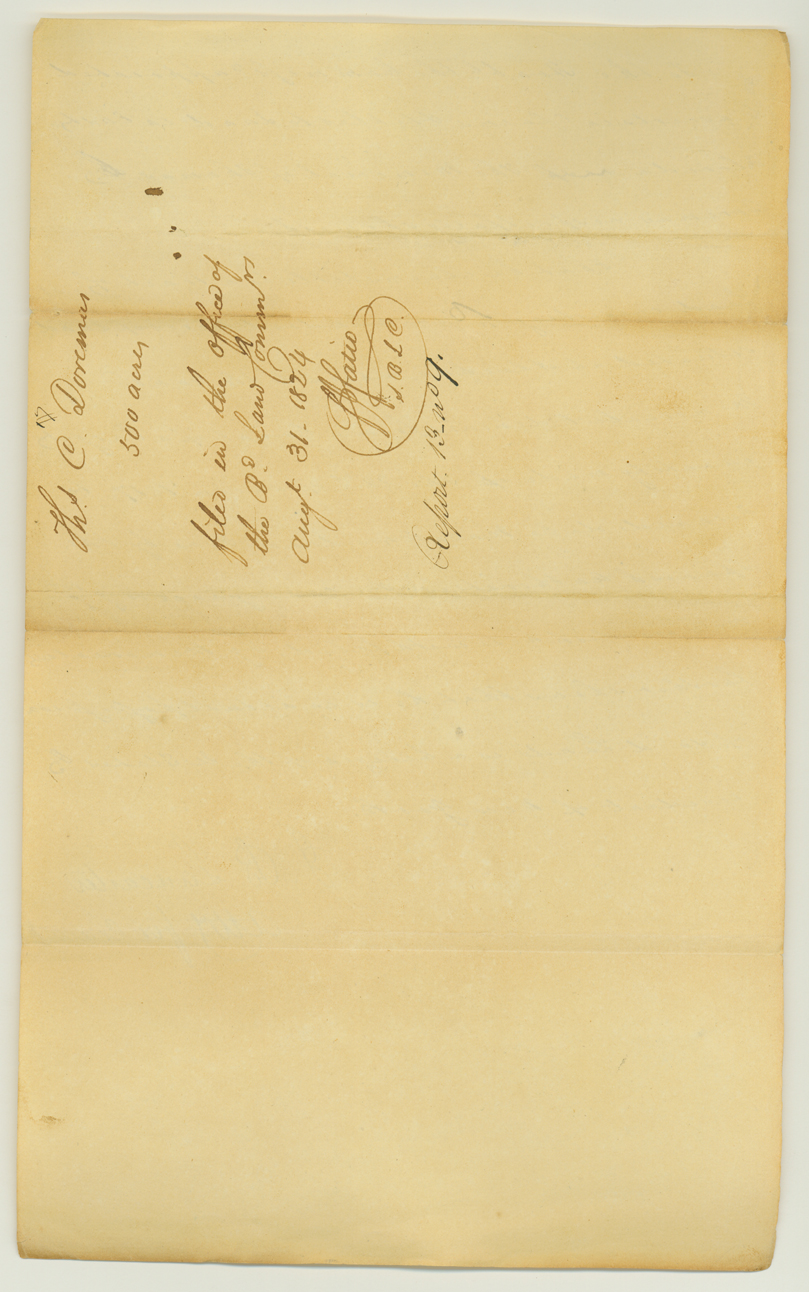 Ths. C. Doremus
500 acres
filed in the Office of
the Bd. Land Commrs.
Augt. 31 - 1824
FJFatio
S. B. L C.
Report. 13 - no 9.